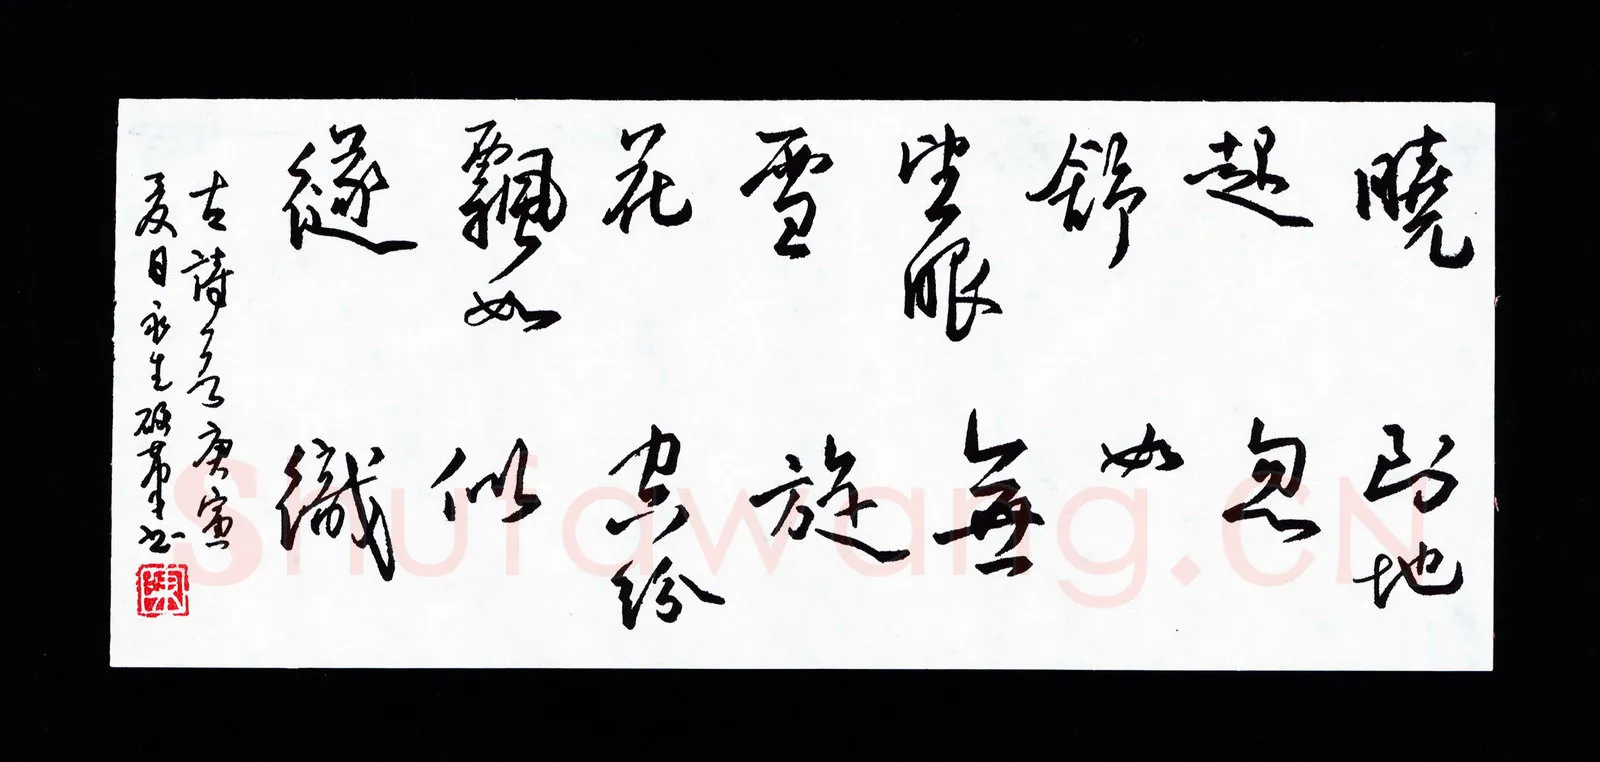 曉起舒望眼雪花飄如
即地忽如無旋空紛似織
古詩一首庚寅
夏日永生硬筆書
陳
Shufawang.CN